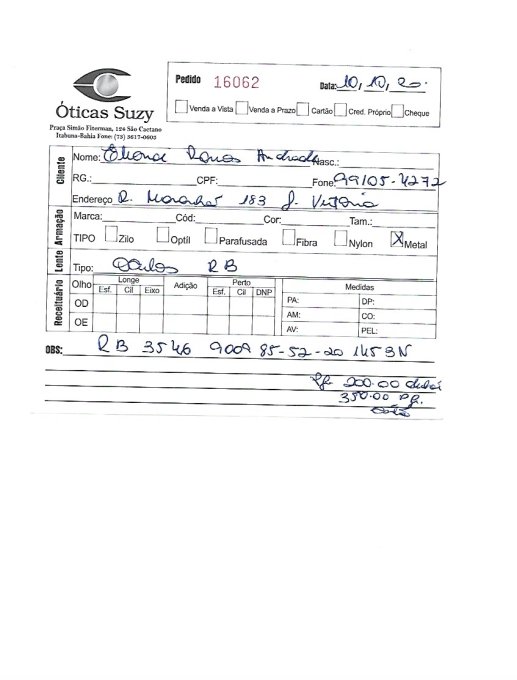 Pedido 16062 Data: 10, 10, 20.
Venda a Vista Venda a Prazo Cartão Cred. Próprio Cheque
Óticas Suzy
Praça Simão Fiterman, 124 São Caetano
Itabuna-Bahia Fone: (73) 3617-0603
Cliente
Nome: Andrade Nasc.:
RG.: CPF: Fone: 99105-4272
Endereço R. 183 J. Vitória
Armação
Marca: Cód: Cor: Tam.:
TIPO Zilo Optíl Parafusada Fibra Nylon X Metal
Lente
Tipo: Óculos RB
Receituário
Olho Longe Adição Perto Medidas
Esf. Cil Eixo Esf. Cil DNP
PA: DP:
OD
AM: CO:
OE
AV: PEL:
OBS: RB 3546 9009 85-52-20 145 3N
200.00
350.00 Pg.